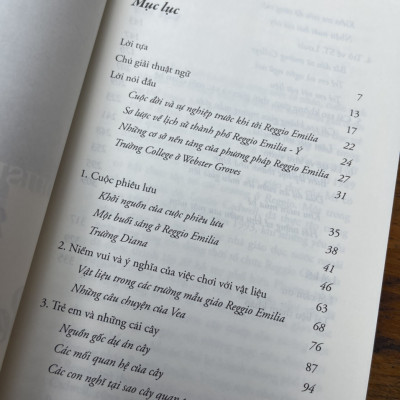 Mục lục
Lời tựa 7
Chú giải thuật ngữ 13
Lời nói đầu 17
Cuộc đời và sự nghiệp trước khi tới Reggio Emilia 22
Sơ lược về lịch sử thành phố Reggio Emilia - Ý 24
Những cơ sở nền tảng của phương pháp Reggio Emilia 27
Trường College ở Webster Groves 31
1. Cuộc phiêu lưu 35
Khởi nguồn của cuộc phiêu lưu 38
Một buổi sáng ở Reggio Emilia 41
Trường Diana 46
2. Niềm vui và ý nghĩa của việc chơi với vật liệu 63
Vật liệu trong các trường mẫu giáo Reggio Emilia 68
Những câu chuyện của Vea 76
3. Trẻ em và những cái cây 87
Nguồn gốc dự án cây 94
Các mối quan hệ của cây
Các con nghĩ tại sao cây quan